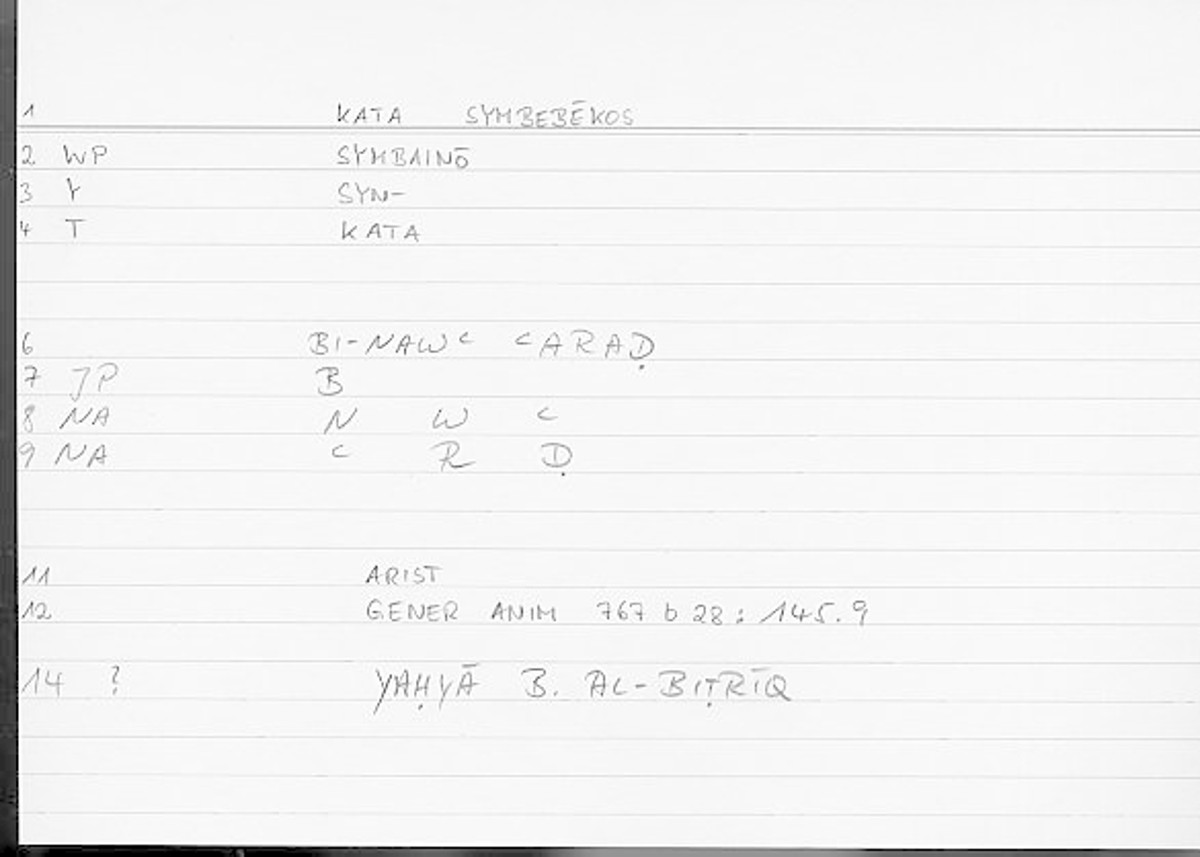 1 KATA SYMBEBĒKOS
2 WP SYMBAINŌ
3 Y SYN-
4 T KATA
6 BI-NAWʿ ʿARAḌ
7 JP B
8 NA N W ʿ
9 NA ʿ R Ḍ
11 ARIST
12 GENER ANIM 767 b 28 : 145.9
14 ? YAḤYĀ B. AL-BIṬRĪQ